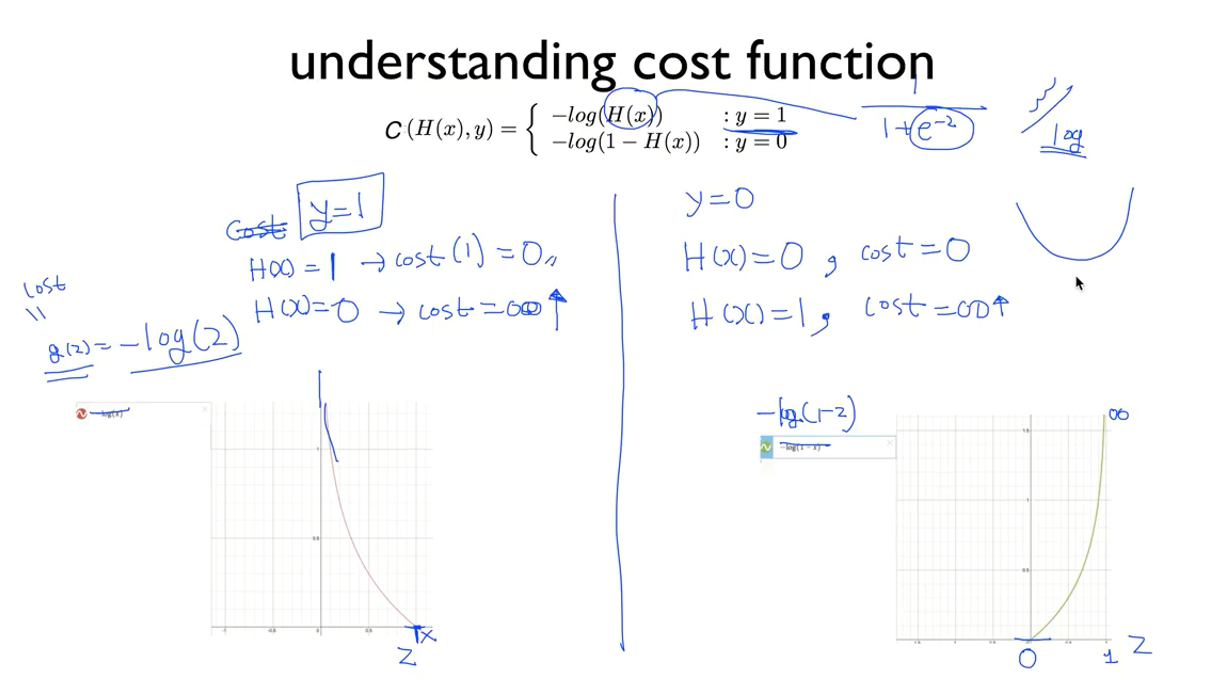 understanding cost function
C (H(x), y) = { −log(H(x)) : y = 1
−log(1 − H(x)) : y = 0
1
1+e^-z
log
Cost y=1
H(x) = 1 → cost (1) = 0,,
H(x) = 0 → cost = ∞ ↑
cost
||
g(z) = -log(z)
y=0
H(x) = 0 , cost = 0
H(x) = 1 , cost = ∞ ↑
-log(x)
1
0.5
-1 -0.5 0 0.5 x
z
-log(1-z)
-log(1 − x)
∞
1.5
1
0.5
0 1 z